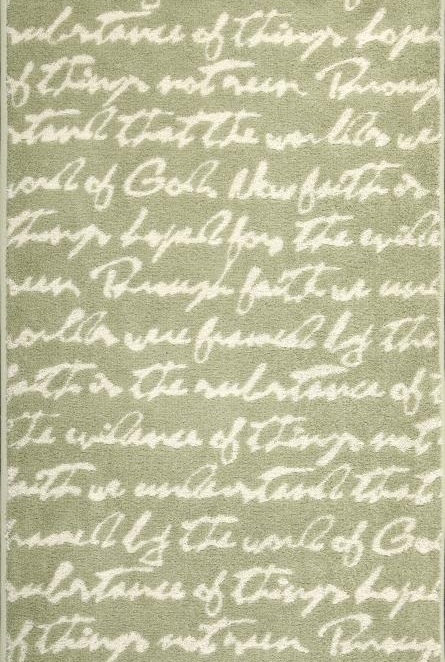 substance of things hope
of things not seen Throug
stand that the worlds we
word of God. Now faith is
things hoped for, the evide
seen Through faith we und
worlds were framed by the
faith is the substance of t
the evidence of things not
faith we understand that t
framed by the word of God
substance of things hope
of things not seen Throug